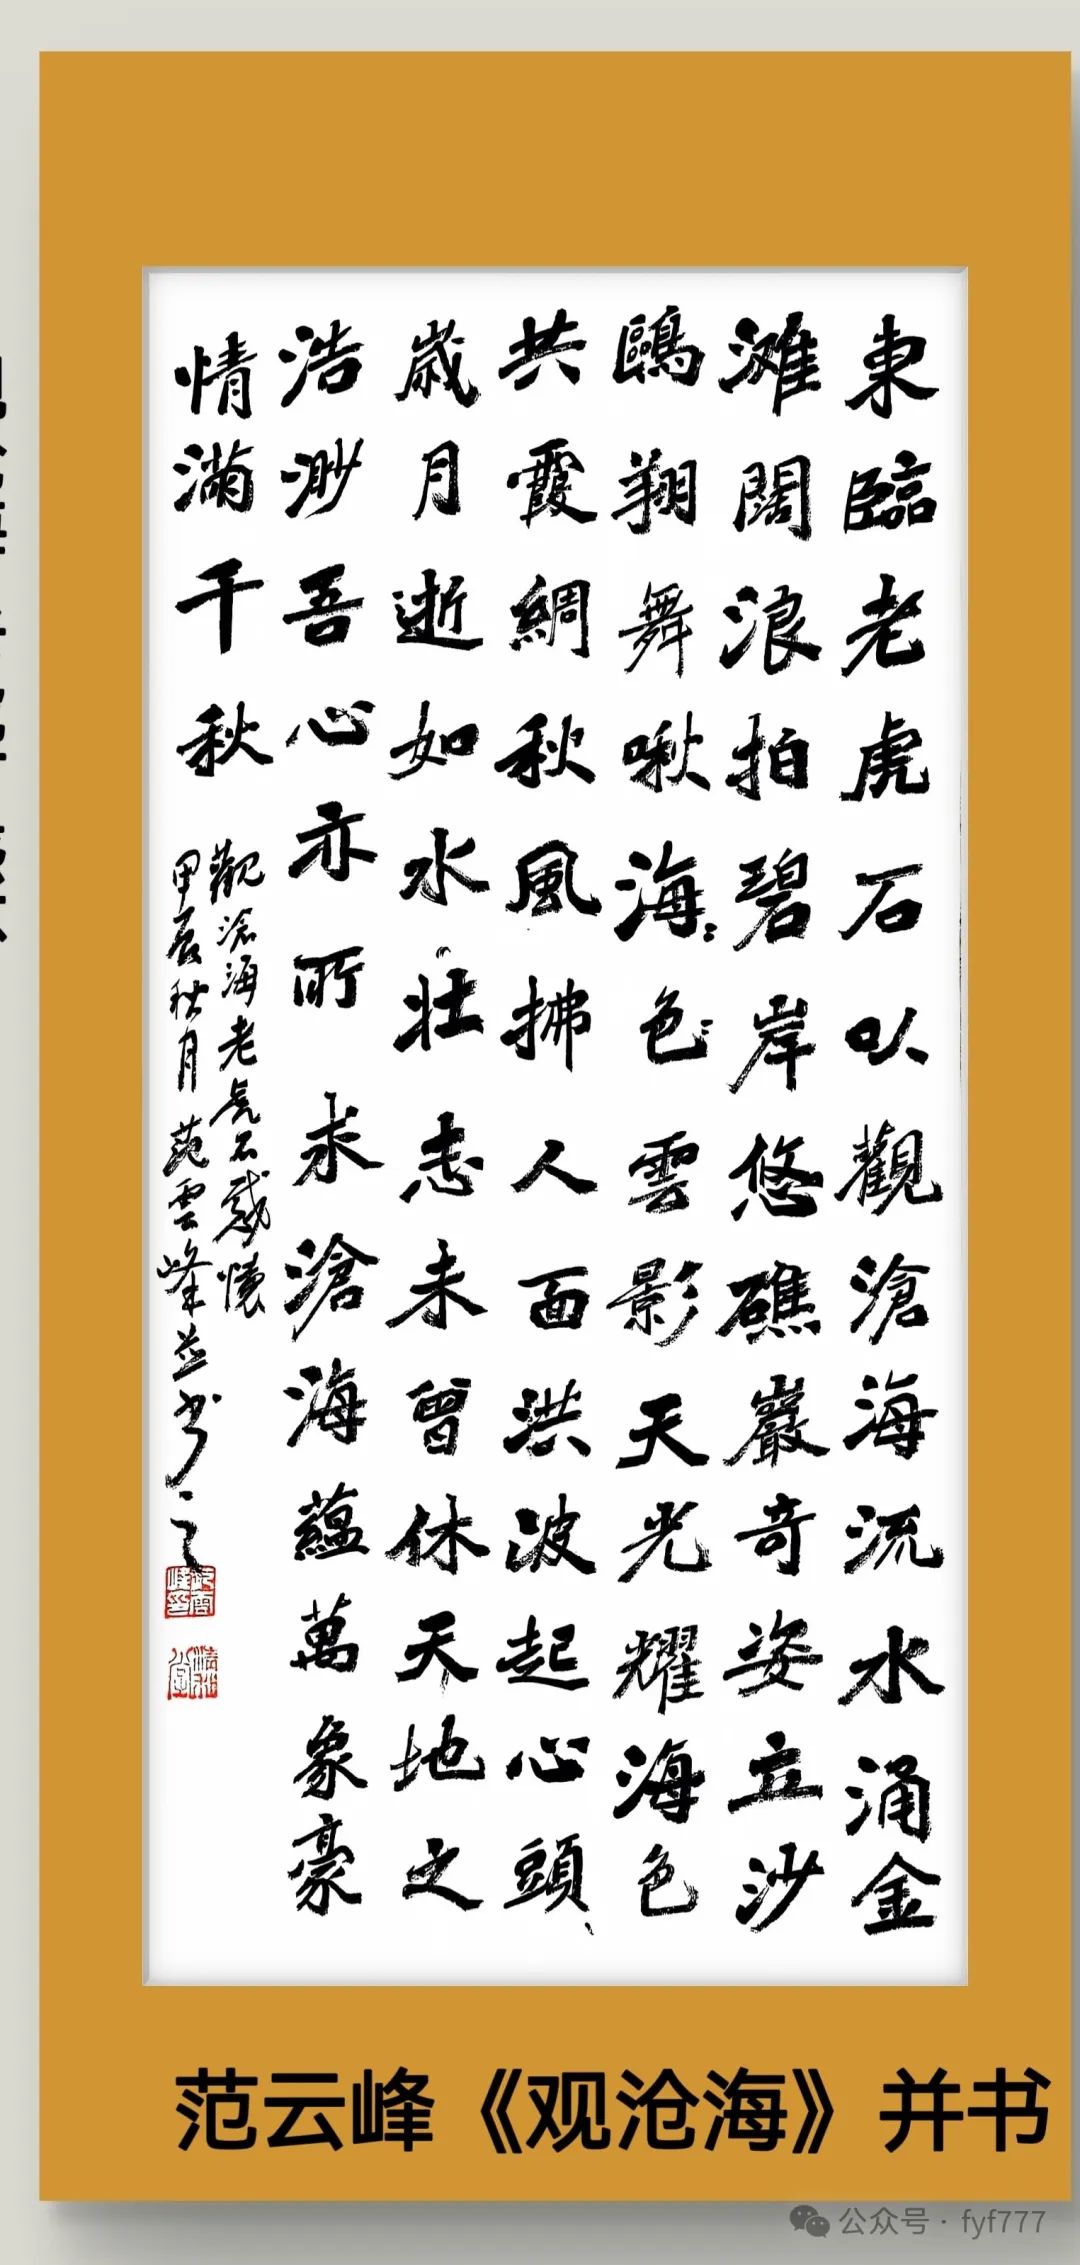 東臨老虎石以觀滄海流水涌金
滩闊浪拍碧岸悠礁巖奇姿立沙
鷗翔舞啾海:色:雲影天光耀海色
共霞綢秋風拂人面洪波起心頭
歲月逝如水壮志未曾休天地之
浩渺吾心亦所求滄海蘊萬象豪
情满千秋
觀滄海老虎石感懷
甲辰秋月范雲峰並书之
范云峰《观沧海》并书
公众号·fyf777